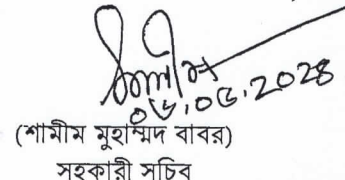 ০৬.০৫.২০২৪
(শামীম মুহাম্মদ বাবর)
সহকারী সচিব